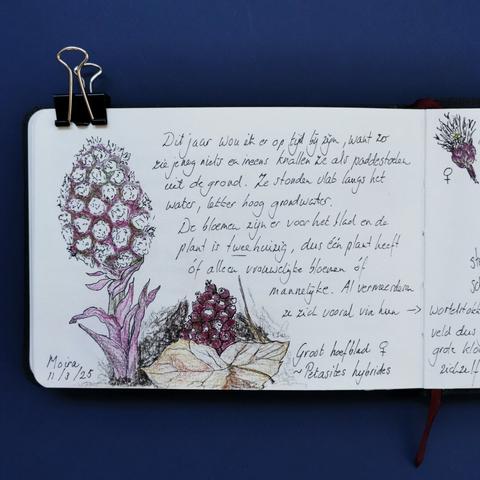 Dit jaar wou ik er op tijd bij zijn, want zo
zie je nog niets en ineens knallen ze als paddestoelen
uit de grond. Ze stonden vlak langs het
water, lekker hoog grondwater.
De bloemen zijn er voor het blad en de
plant is tweehuizig, dus één plant heeft
óf alleen vrouwelijke bloemen óf
mannelijke. Al vermeerderen
ze zich vooral via hun →
Groot hoefblad ♀
~ Petasites hybrides
Moira
11/3/25
♀
wortelstokk
veld dus
grote klo
zichzelf